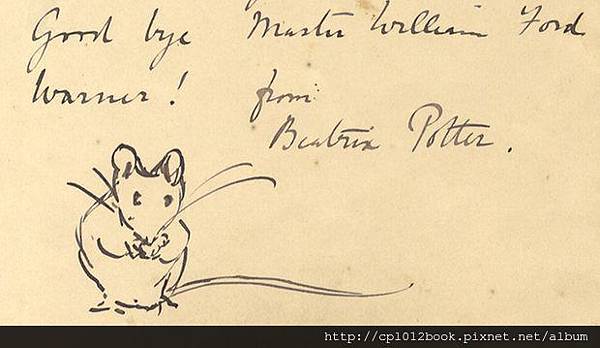 Good bye Master William Ford
Warner! from
Beatrix Potter.
http://cpl012book.pixnet.net/album